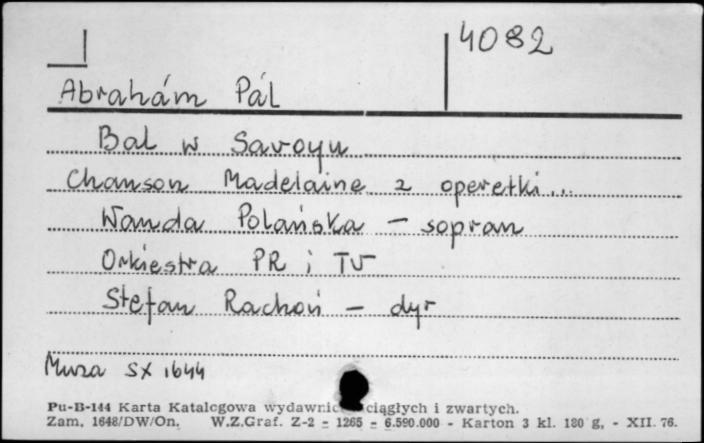 4082
Abrahám Pál
Bal w Savoyu
Chanson Madelaine z operetki...
Wanda Polańska – sopran
Orkiestra PR i TV
Stefan Rachoń – dyr
Muza SX 1644
Pu-B-144 Karta Katalogowa wydawnic ciągłych i zwartych.
Zam. 1648/DW/On. W.Z.Graf. Z-2 = 1265 = 6.590.000 - Karton 3 kl. 180 g, - XII. 76.